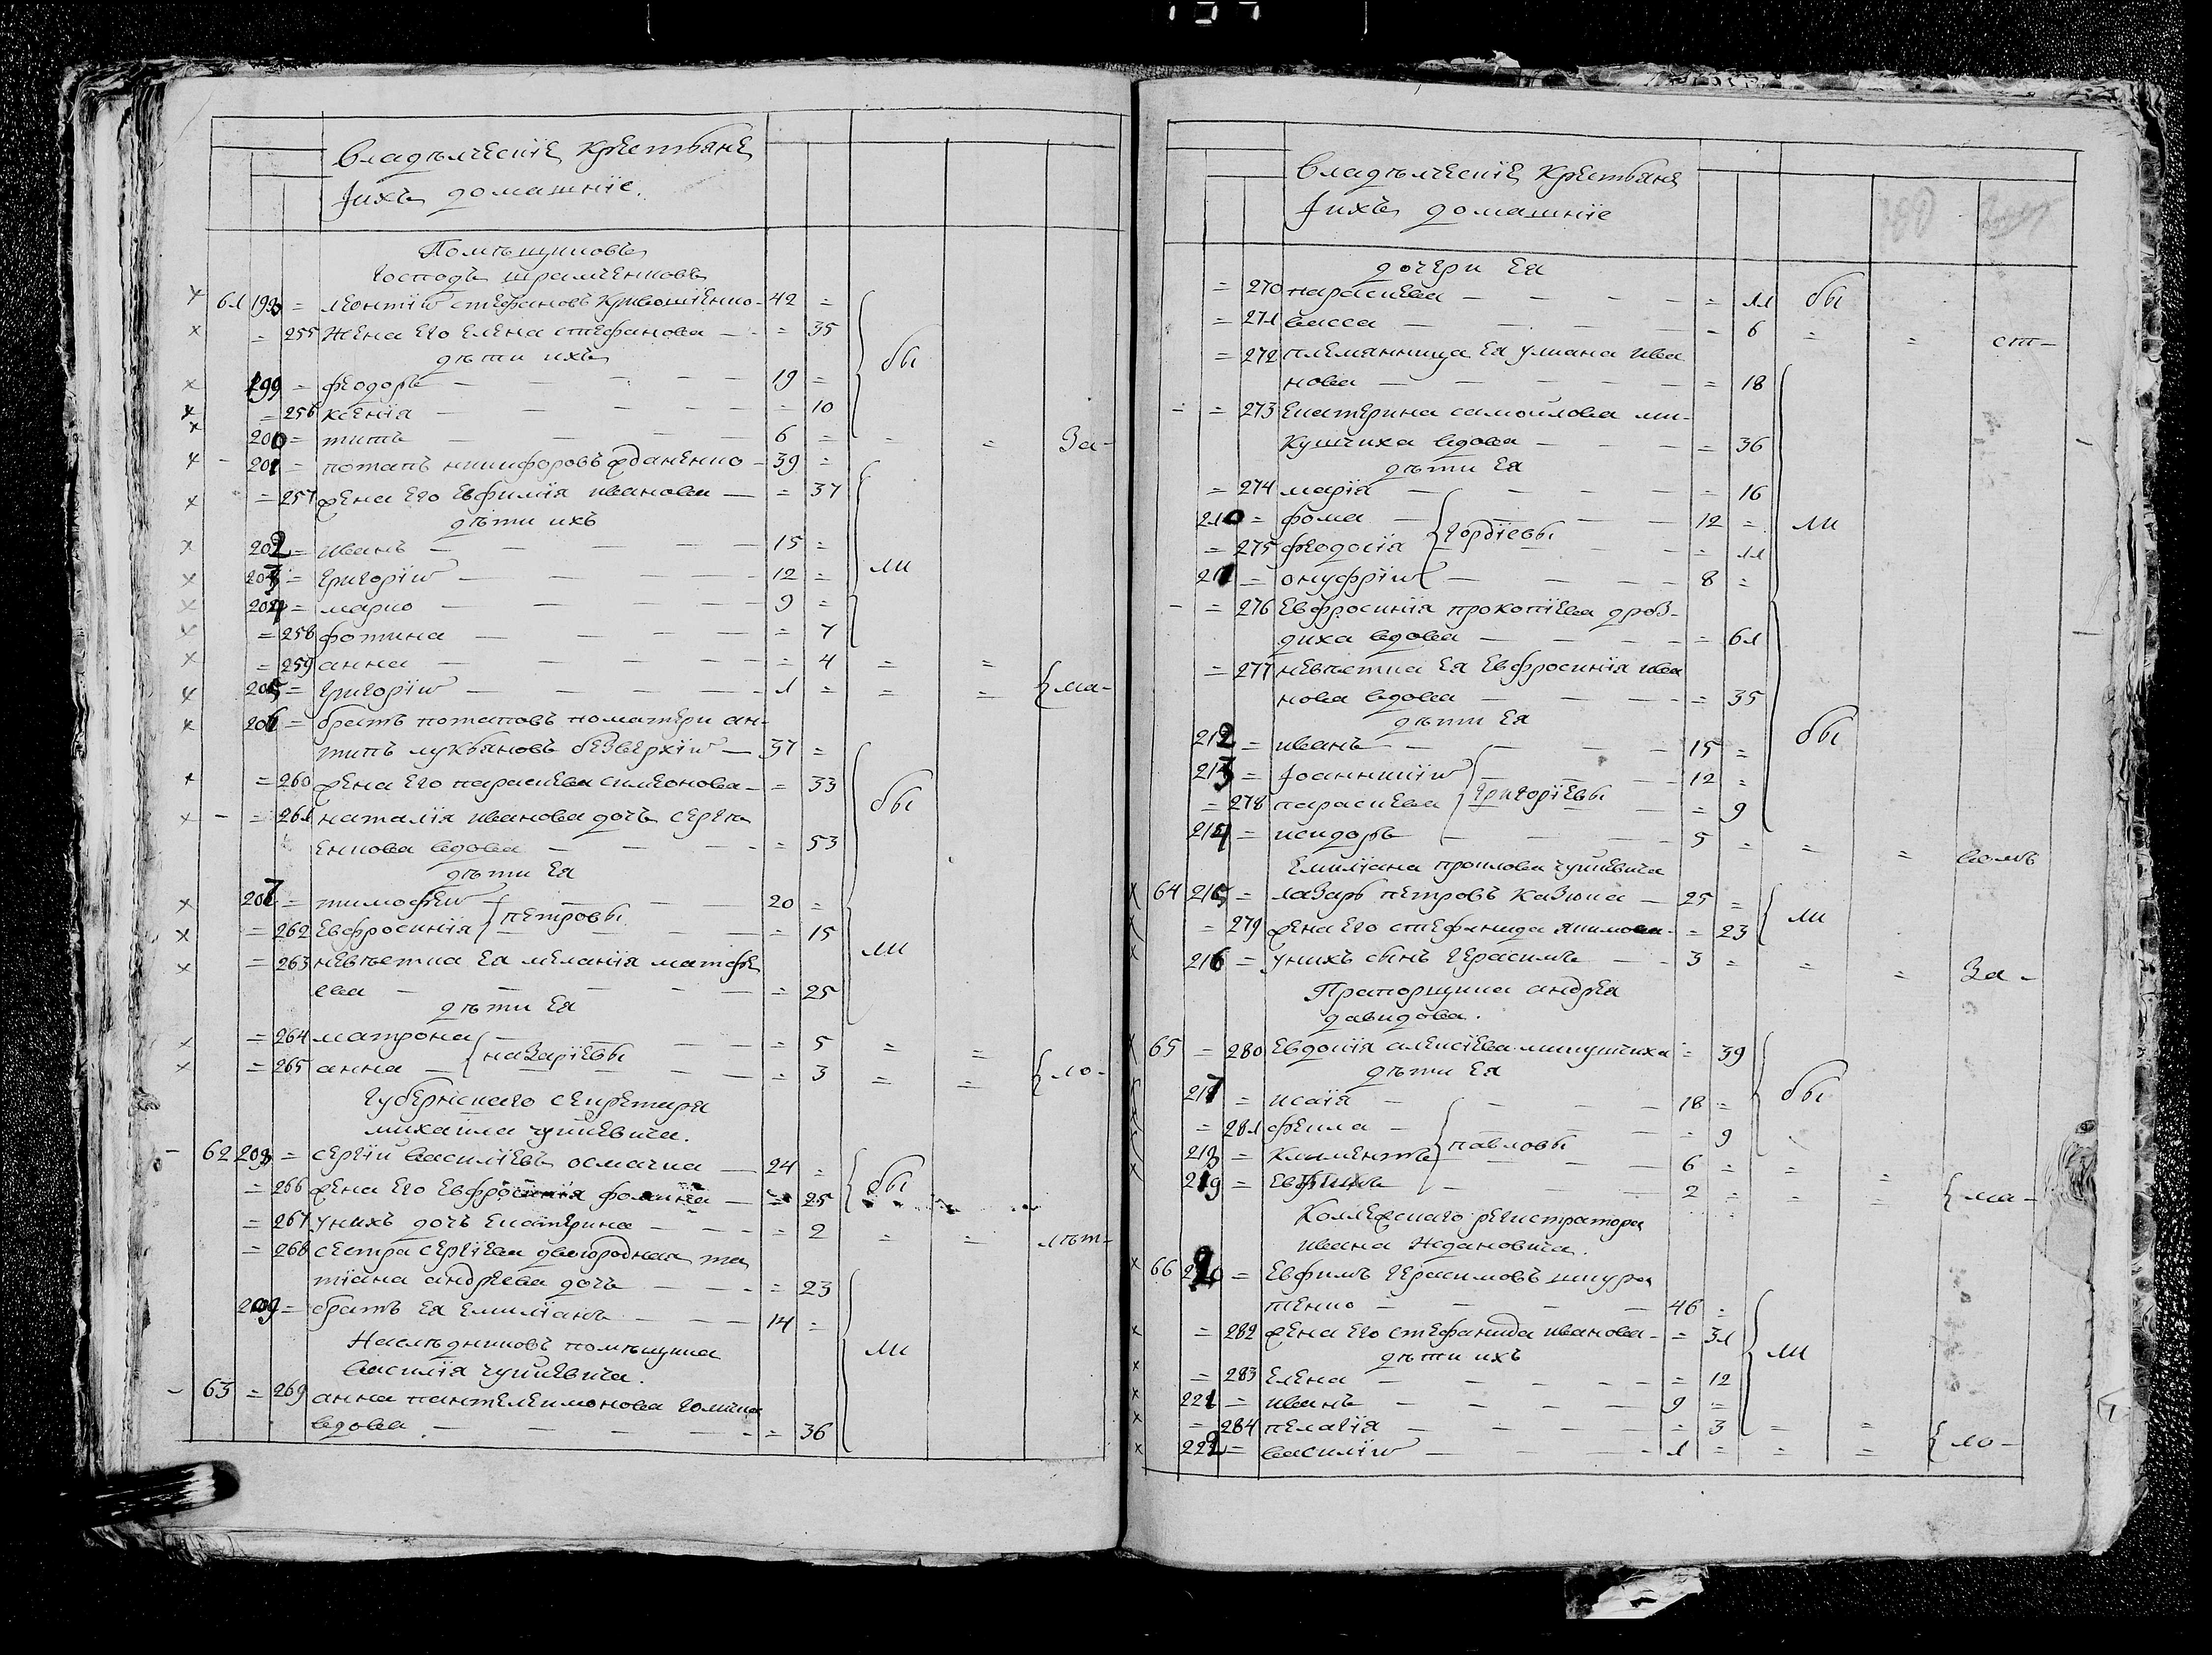 Владѣлческіе крестьяне
Іихъ домашніе.
Помѣщиковъ
Господъ
61 198 = леонтій стефановъ кривошіенко - 42 =
= 255 жена его елена стефанова - = 35
дѣти ихъ
199 = феодоръ - 19 =
= 256 ксенія - = 10
бы
200 = титъ - 6 = = = За-
201 = потапъ никифоровъ жданенко - 39 =
= 257 жена его евфимія иванова - = 37
дѣти ихъ
202 = иванъ - 15 =
203 = григорій - 12 =
ли
204 = марко - 9 =
= 258 фотина - = 7
= 259 анна - = 4 = =
205 = григорій - 1 = = = ма-
206 = братъ потаповъ поматери ан-
типъ лукьяновъ безверхій - 37 =
= 260 жена его параскева симеонова - = 33
бы
= 261 наталія иванова дочь серге
енкова вдова - = 53
дѣти ея
207 = тимофей - 20 =
петровы
= 262 евфросинія = 15
ли
= 263 невѣстка ея меланія матфе
ева - = 25
дѣти ея
= 264 матрона - = 5 = =
назаріевы
= 265 анна - = 3 = = ло-
Губернскаго секретаря
михаила чуйкевича.
62 208 = сергій василіевъ осмачка - 24 =
бы
= 266 жена его евфросинія фомина - = 25
= 267 унихъ дочь екатерина - = 2 = = лѣт-
= 268 сестра сергіева двоюродная та
тіана андреева дочь - = 23
209 = братъ ея емиліанъ - 14 =
Наслѣдниковъ помѣщика
василія чуйкевича.
ли
63 = 269 анна пантелеимонова
вдова - = 36
Владѣлческіе крестьяне
Іихъ домашніе
дочери ея
= 270 параскева - = 11 бы
= 271 васса - = 6 = = ст-
= 272 племянница ея улиана ива
нова - = 18
= 273 екатерина самоилова ми-
кушчиха вдова - = 36
дѣти ея
= 274 марія - = 16
210 = фома - 12 = ли
гордіевы
= 275 феодосія = 11
211 = онуфрій - 8 =
= 276 евфросинія прокопіева дроз-
диха вдова - = 61
= 277 невѣстка ея евфросинія ива
нова вдова - = 35
дѣти ея
212 = иванъ - 15 = бы
213 = Іоанникій - 12 =
григоріевы
= 278 параскева = 9
214 = исидоръ - 5 = = = вомъ
Емиліана чуйкевича
64 215 = лазарь петровъ казюка - 25 =
ли
= 279 жена его стефанида якимова - = 23
216 = унихъ сынъ герасимъ - 3 = = = За-
Прапорщика андрея
давидова.
65 = 280 евдокія алексіева микушчиха = 39
дѣти ея
217 = исаія - 18 = бы
= 281 фекла - = 9
павловы
218 = климентъ - 6 = = =
219 = евфимъ - 2 = = = ма-
Коллежскаго регистратора
ивана Ждановича.
66 220 = евфимъ герасимовъ шкура
тенко - 46 =
= 282 жена его стефанида иванова - = 31
дѣти ихъ ли
= 283 елена - = 12
221 = иванъ - 9 =
= 284 пелагія - = 3 = =
222 = василій - 1 = = = ло-